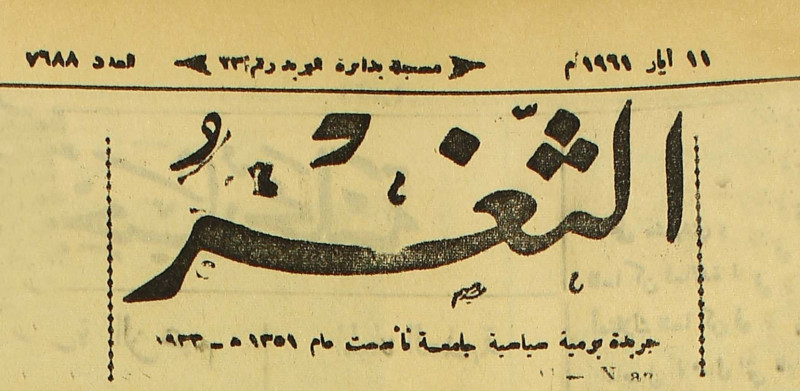 ١١ أيار ١٩٦١ م مسجلة بدائرة البريد رقم ٢٣ العدد ٧٦٨٨
الثَّغْرُ
جريدة يومية سياسية جامعة تأسست عام ١٣٥١ ه - ١٩٣٣